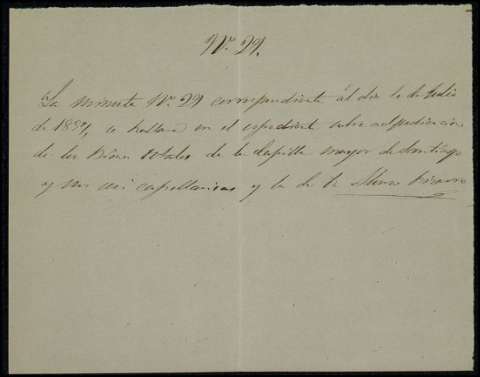 Nº 29.
La minuta Nº 29 correspondiente al dia 1º de Julio
de 189 se hallara en el espediente sobre
de los Bienes totales de la Capilla mayor de Santiago
y sus seis capellanias y la de la